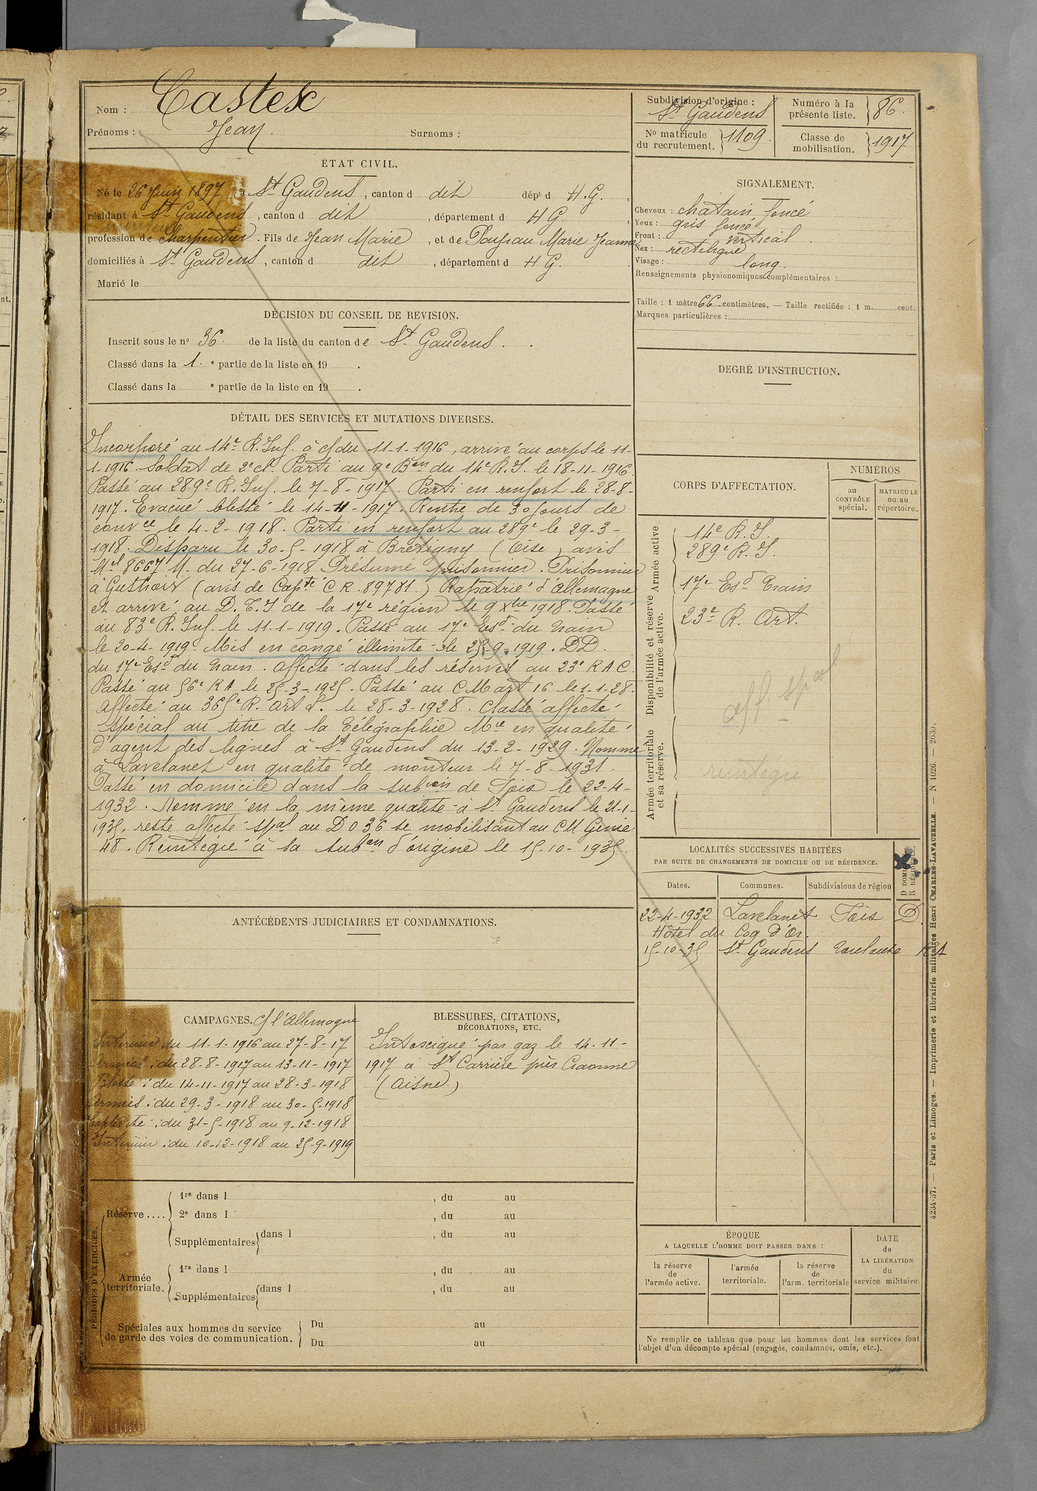 Nom : Castex
Prénoms : Jean Surnoms :
ÉTAT CIVIL.
Né le 26 Juin 1897 à St Gaudens, canton d dit dépt d H.G.
résidant à St Gaudens, canton d dit, département d H G
profession de charpentier. Fils de Jean Marie, et de Marie Jeanne
domiciliés à St Gaudens, canton d dit, département d H G.
Marié le
DÉCISION DU CONSEIL DE REVISION.
Inscrit sous le n° 36 de la liste du canton de St Gaudens.
Classé dans la 1.e partie de la liste en 19 .
Classé dans la e partie de la liste en 19 .
DÉTAIL DES SERVICES ET MUTATIONS DIVERSES.
Incorporé au 14e R. Inf. à c/ du 11-1-1916, arrivé au corps le 11-
1-1916. Soldat de 2e cl. Parti au 9e Bon du 14e R.I. le 18-11-1916.
Passé au 289e R. Inf. le 7-8-1917. Parti en renfort le 28-8-
1917. Evacué blessé le 14-11-1917. Rentré de 30 jours de
convce le 4-2-1918. Parti en renfort au 289e le 29-3-
1918. Disparu le 30-5-1918 à Brétigny (Oise, avis
Mel 8667 M. du 27-6-1918. Présumé prisonnier. Prisonnier
à (avis de Capté CR 89781.) Rapatrié d'Allemagne
et arrivé au D.T.I de la 17e région le 9 Xbre 1918. Passé
au 83e R. Inf. le 11-1-1919. Passé au 17e Esd du train
le 20-4-1919. Mis en congé illimité le 25-9-1919. DD.
du 17e Esd du train. Affecté dans les réserves au 23e RAC.
Passé au 56e RA le 25-3-1925. Passé au C M art 16 le 1-1-28.
Affecté au 365e R. Art L. le 28-3-1928. Classé affecté
spécial au titre de la télégraphie Mre en qualité
d'agent des lignes à St Gaudens du 13-2-1929. Nommé
à Lavelanet en qualité de monteur le 7-8-1931.
Passé en domicile dans la Subon de Foix le 22-4-
1932. Nommé en la même qualité à St Gaudens le 21-1-
1935. reste affecté spal au DO 36 se mobilisant au CM Génie
48. Réintégré à sa subon d'origine le 15-10-1935.
ANTÉCÉDENTS JUDICIAIRES ET CONDAMNATIONS.
CAMPAGNES. c/ l'Allemagne
Intérieur du 11-1-1916 au 27-8-17
Armées : du 28-8-1917 au 13-11-1917
Blessé : du 14-11-1917 au 28-3-1918
Armées : du 29-3-1918 au 30-5-1918
Captivité : du 31-5-1918 au 9-12-1918
Intérieur : du 10-12-1918 au 25-9-1919
BLESSURES, CITATIONS,
DÉCORATIONS, ETC.
Intoxiqué par gaz le 14-11-
1917 à St Carrière près Craonne
(Aisne)
PÉRIODES D'EXERCICES.
Réserve....
1re dans l , du au
2e dans l , du au
Supplémentaires dans l , du au
Armée territoriale.
1re dans l , du au
Supplémentaires dans l , du au
Spéciales aux hommes du service
de garde des voies de communication.
Du au
Du au
Subdivision d'origine :
St Gaudens
N° matricule
du recrutement. 1109
Numéro à la
présente liste. 86.
Classe de
mobilisation. 1917
SIGNALEMENT.
Cheveux : chatain foncé
Yeux : gris foncé
Front : vertical
Nez : rectiligne
Visage : long
Renseignements physionomiques complémentaires :
Taille : 1 mètre 66 centimètres. — Taille rectifiée : 1 m. cent.
Marques particulières :
DEGRÉ D'INSTRUCTION.
CORPS D'AFFECTATION.
NUMÉROS
AU
CONTRÔLE
spécial.
MATRICULE
OU AU
répertoire.
Armée active
14e R.I.
289e R.I.
17e Esd Train
Disponibilité et réserve
de l'armée active.
23e R. Art.
aff. spal
Armée territoriale
et sa réserve.
réintégré
LOCALITÉS SUCCESSIVES HABITÉES
PAR SUITE DE CHANGEMENTS DE DOMICILE OU DE RÉSIDENCE.
Dates. Communes. Subdivisions de région
22-4-1932 Lavelanet Foix D.
Hôtel du Coq d'Or.
15-10-35 St Gaudens Toulouse
ÉPOQUE
A LAQUELLE L'HOMME DOIT PASSER DANS :
la réserve
de
l'armée active.
l'armée
territoriale.
la réserve
de
l'arm. territoriale
DATE
de
LA LIBÉRATION
du
service militaire.
Ne remplir ce tableau que pour les hommes dont les services font
l'objet d'un décompte spécial (engagés, condamnés, omis, etc.).
4234-37. — Paris et Limoges. — Imprimerie et librairie militaires Henri CHARLES-LAVAUZELLE. — N 1026.